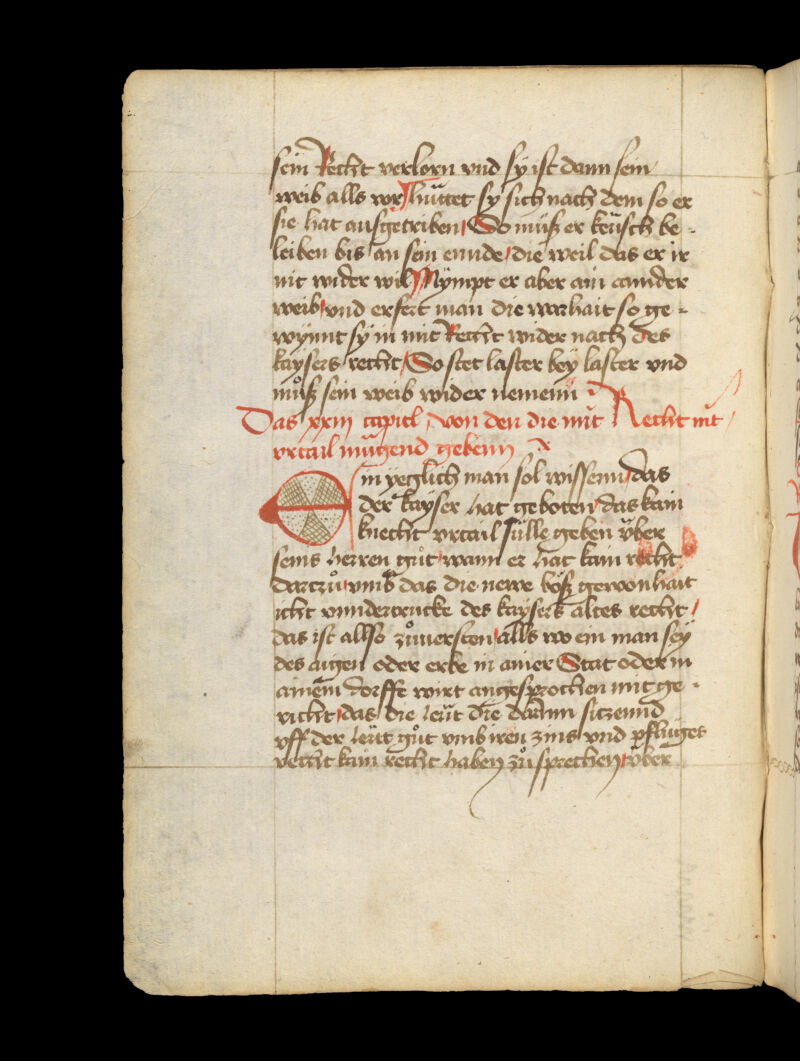 sein Recht verlorn vnd sy ist dann sein
weib alls vor / hüttet sy sich nach dem so er
sie hat ausgetriben / So müß er keüsch be-
leiben bis an sein ennde / die weil das er ir
nit wider wil Nympt er aber ain annder
weib / vnd erfert man die warhait so ge-
wynnt sy in mit Recht wider nach des
kaysers recht / So stet laster bey laster vnd
můß sein weib wider nemenn
Das xxiij capitl / von den die mit Recht nit /
vrtail mügend gebenn
Ein yeglich man sol wissenn / das
der kayser hat geboten / das kain
knecht vrtail sülle geben über
seins herren gůt / wann er hat kain recht
dartzů / vmb das die newe böß gewonhait
icht vnndertrucke des kaysers altes recht /
das ist allso zůuersten / alls wo ein man sey
des aigen oder erbe in ainer Stat oder in
ainem dorffe wirt angesprochen mit ge-
richt / das die leüt die darinn sitzennd
vff der leüt gůt vmb iren zins vnd pfluges
recht kain recht haben zů sprechen / über